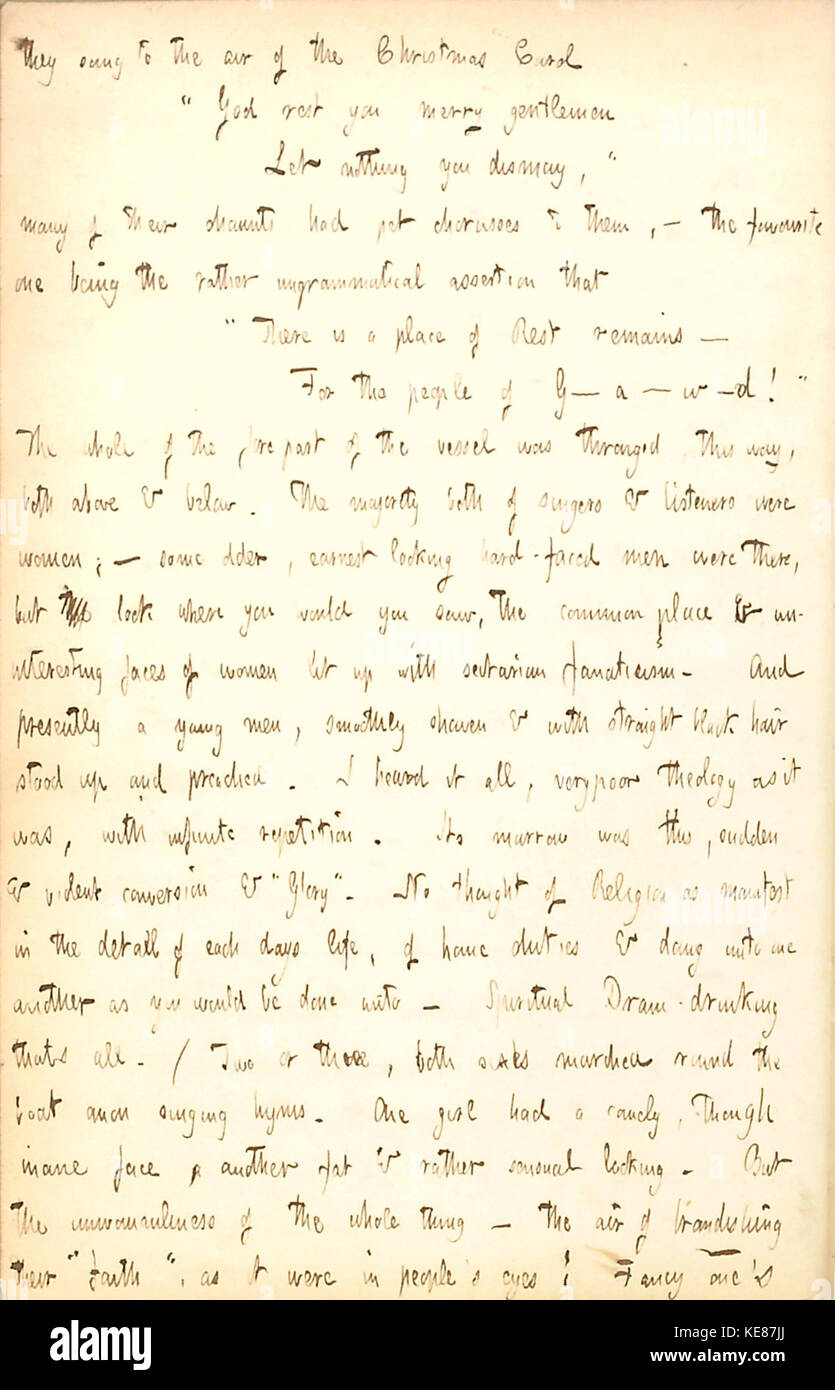 they sung to the air of the Christmas Carol
" God rest you merry gentlemen
Let nothing you dismay, "
many of their chaunts had pet chorusses to them, — the favourite
one being the rather ungrammatical assertion that
" There is a place of Rest remains —
For the people of G — a — w — d ! "
The whole of the fore part of the vessel was thronged this way,
both above & below. The majority both of singers & listeners were
women ; — some older, earnest looking hard-faced men were there,
but look where you would you saw, the common place & un-
interesting faces of women lit up with sectarian fanaticism. And
presently a young men, smoothly shaven & with straight black hair
stood up and preached. I heard it all, very poor theology as it
was, with infinite repetition. Its marrow was this, sudden
& violent conversion & "Glory". No thought of Religion as manifest
in the detail of each days life, of home duties & doing unto one
another as you would be done unto — Spiritual Dram-drinking
thats all. / Two or three, both sexes marched round the
boat anon singing hyms. One girl had a comely, though
inane face, another fat & rather sensual looking. But
the unwomanliness of the whole thing — the air of brandishing
their "Faith", as it were in people's eyes ! Fancy one's
alamy
Image ID: KE87JJ
www.alamy.com
alamy stock photo